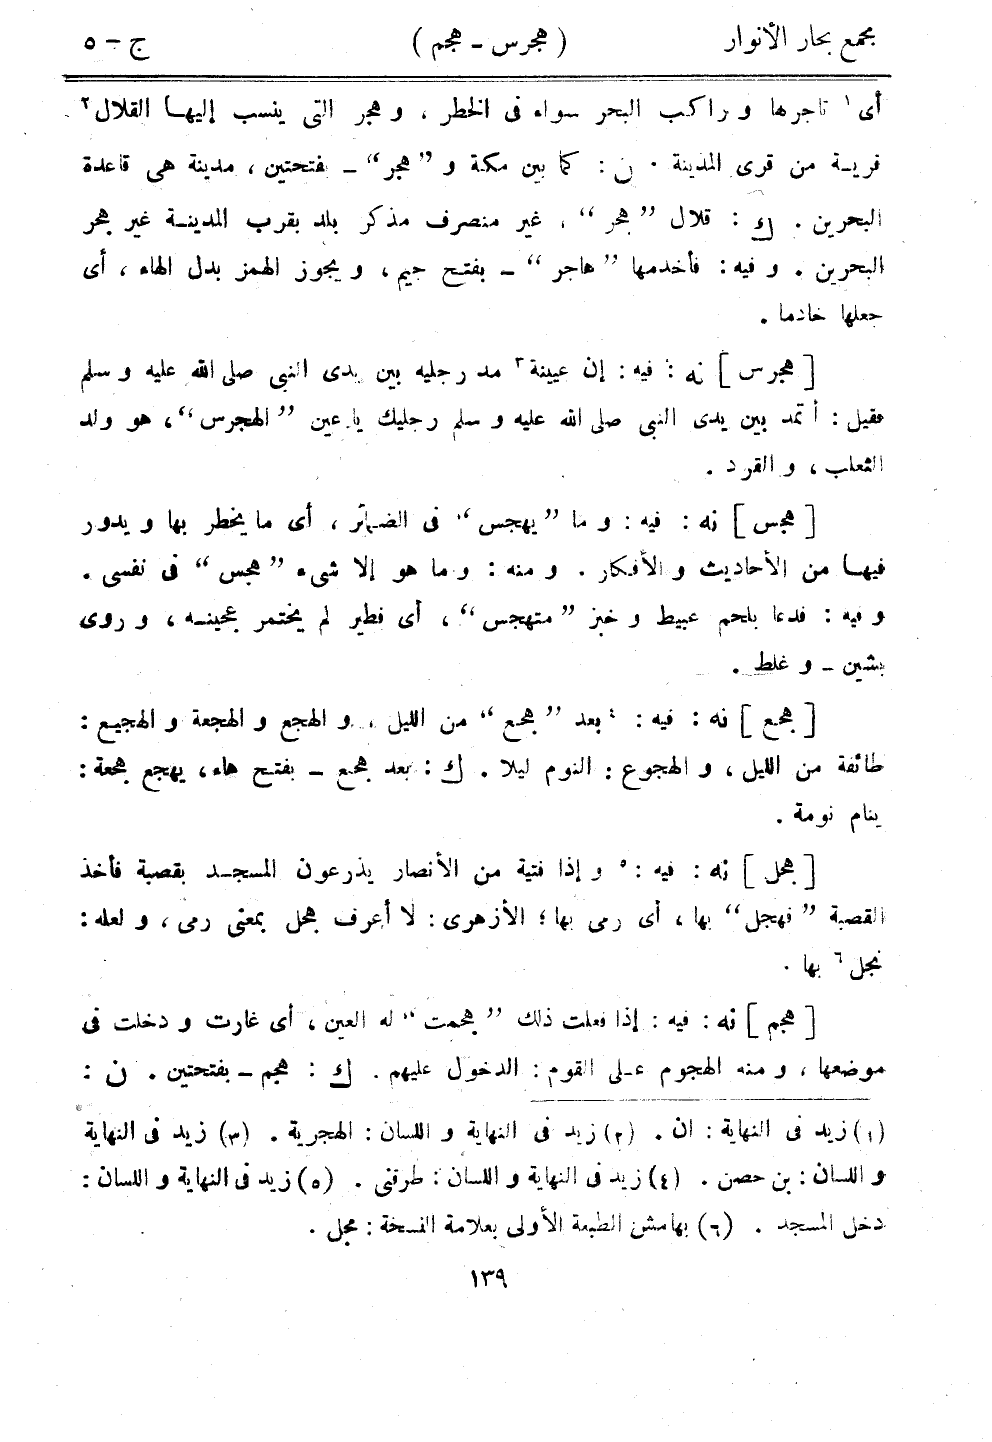 مجمع بحار الأنوار ( هجرس - هجم ) ج - ٥
أى ١ تاجرها و راكب البحر سواء فى الخطر ، و هجر التى ينسب إليها القلال ٢
قرية من قرى المدينة . ن : كما بين مكة و ”هجر“ - بفتحتين ، مدينة هى قاعدة
البحرين . ك : قلال ”هجر“ ، غير منصرف مذكر بلد بقرب المدينة غير هجر
البحرين . و فيه : فأخدمها ”هاجر“ - بفتح جيم ، و يجوز الهمز بدل الهاء ، أى
جعلها خادما .
[ هجرس ] نه : فيه : إن عيينة ٣ مد رجليه بين يدى النبى صلى الله عليه و سلم
فقيل : أتمد بين يدى النبى صلى الله عليه و سلم رجليك يا عين ”الهجرس“ ، هو ولد
الثعلب ، و القرد .
[ هجس ] نه : فيه : و ما ”يهجس“ فى الضمائر ، أى ما يخطر بها و يدور
فيها من الأحاديث و الأفكار . و منه : و ما هو إلا شىء ”هجس“ فى نفسى .
و فيه : فدعا بلحم عبيط و خبز ”متهجس“ ، أى فطير لم يختمر عجينه ، و روى
بشين - و غلط .
[ هجع ] نه : فيه : ٤ بعد ”هجع“ من الليل ، و الهجع و الهجعة و الهجيع :
طائفة من الليل ، و الهجوع : النوم ليلا . ك : بعد هجع - بفتح هاء ، يهجع هجعة :
ينام نومة .
[ هجل ] نه : فيه : ٥ و إذا فتية من الأنصار يذرعون المسجد بقصبة فأخذ
القصبة ”فهجل“ بها ، أى رمى بها ؛ الأزهرى : لا أعرف هجل بمعنى رمى ، و لعله :
نجل ٦ بها .
[ هجم ] نه : فيه : إذا فعلت ذلك ”هجمت“ له العين ، أى غارت و دخلت فى
موضعها ، و منه الهجوم على القوم : الدخول عليهم . ك : هجم - بفتحتين . ن :
(١) زيد فى النهاية : ان . (٢) زيد فى النهاية و اللسان : الهجرية . (٣) زيد فى النهاية
و اللسان : بن حصن . (٤) زيد فى النهاية و اللسان : طرقنى . (٥) زيد فى النهاية و اللسان :
دخل المسجد . (٦) بهامش الطبعة الأولى بعلامة النسخة : مجل .
١٣٩